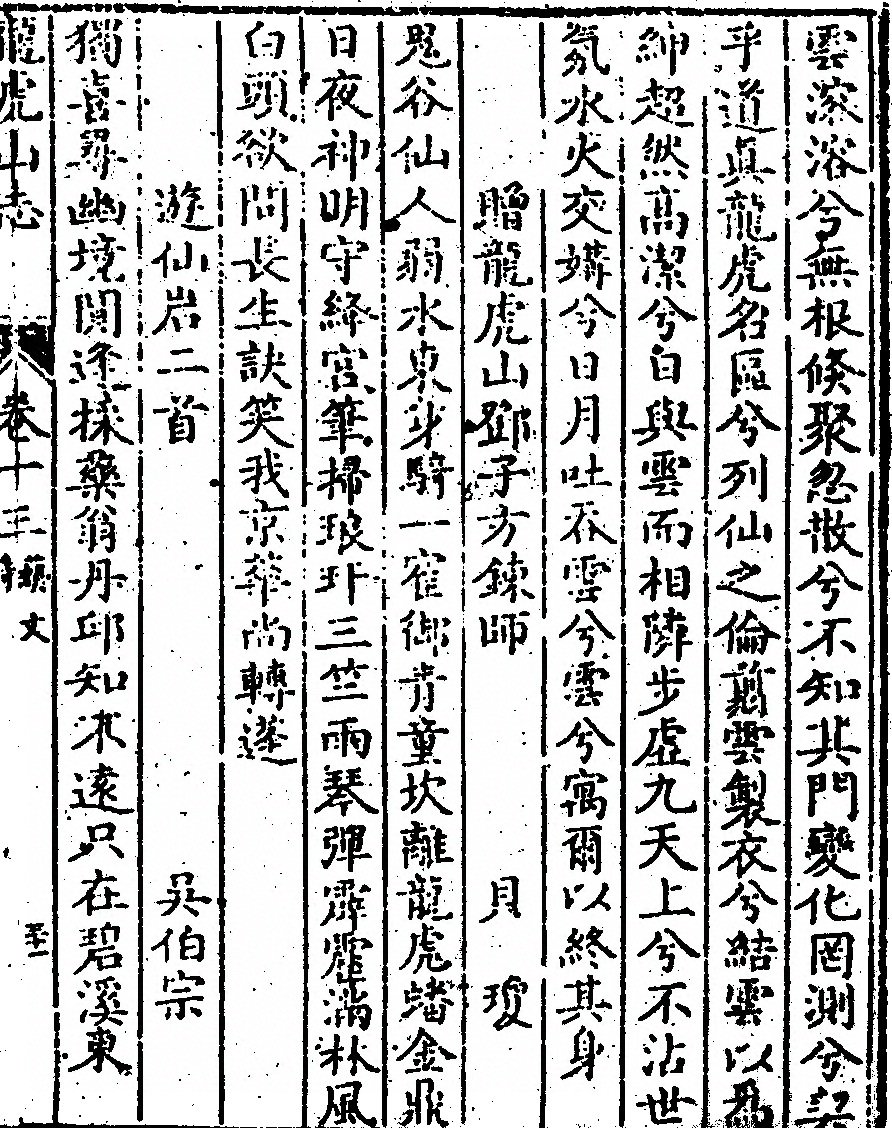 雲溶溶兮無根倐聚忽散兮不知其門變化罔測兮
乎道真龍虎名區兮列仙之倫翦雲製衣兮結雲以爲
紳超然高潔兮白與雲而相隣步虛九天上兮不沾世
氛水火交媾兮日月吐吞雲兮雲兮寓爾以終其身
贈龍虎山鄧子方鍊師 貝瓊
鬼谷仙人弱水東身騎一隺御青童坎離龍虎蟠金鼎
日夜神明守絳宮筆掃琅玕三竺雨琴彈霹靂滿林風
白頭欲問長生訣笑我京華尚轉蓬
遊仙岩二首 吳伯宗
獨喜尋幽境閒逢採藥翁丹邱知不遠只在碧溪東
龍虎山志 卷十三 藝文